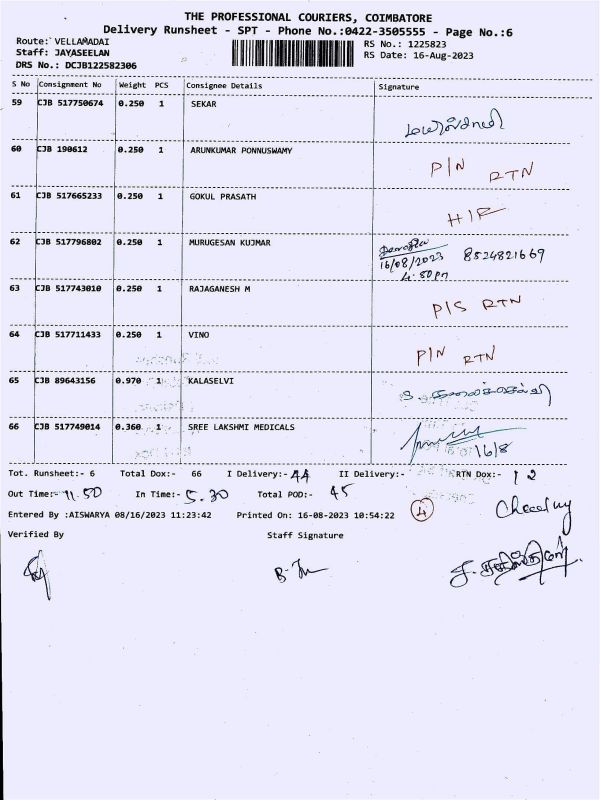 THE PROFESSIONAL COURIERS, COIMBATORE
Delivery Runsheet - SPT - Phone No.:0422-3505555 - Page No.:6
Route: VELLAMADAI
RS No.: 1225823
Staff: JAYASEELAN
RS Date: 16-Aug-2023
DRS No.: DCJB122582306
S No Consignment No Weight PCS Consignee Details Signature
59 CJB 517750674 0.250 1 SEKAR
60 CJB 190612 0.250 1 ARUNKUMAR PONNUSWAMY P/N RTN
61 CJB 517665233 0.250 1 GOKUL PRASATH H/R
62 CJB 517796802 0.250 1 MURUGESAN KUJMAR 8524821669
16/08/2023
4.50pm
63 CJB 517743010 0.250 1 RAJAGANESH M P/S RTN
64 CJB 517711433 0.250 1 VINO P/N RTN
65 CJB 89643156 0.970 1 KALASELVI
66 CJB 517749014 0.360 1 SREE LAKSHMI MEDICALS 16/8
Tot. Runsheet:- 6 Total Dox:- 66 I Delivery:- 44 II Delivery:- RTN Dox:- 12
Out Time:- 11.50 In Time:- 5.30 Total POD:- 45
4
Entered By :AISWARYA 08/16/2023 11:23:42 Printed On: 16-08-2023 10:54:22
Verified By Staff Signature